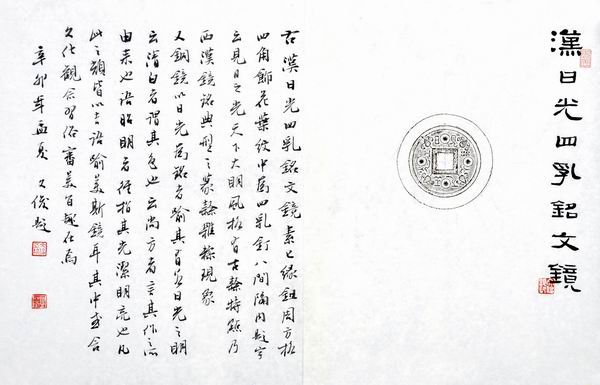 漢日光四乳銘文鏡
漢日光四乳銘文鏡素緣鈕周方框
四角飾花葉紋中爲四乳釘八間隔內題字
云見日之光天下大明風格有古隸特點乃
西漢鏡銘典型之篆隸雜糅現象
又銅鏡以日光爲銘者喻其有日光之明
云清白者謂其色也云尚方者言其作之所
由來也語昭明者指其光潔明亮也凡
此之類皆以吉語喻美斯鏡耳其中或含
文化觀念習俗審美旨趣在焉
辛卯年孟夏 俊題